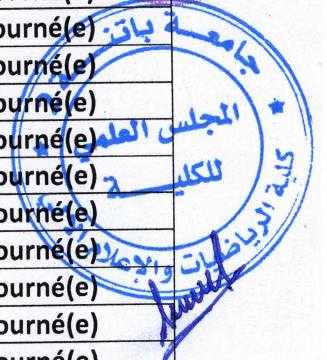 ourné(e)
ourné(e)
ourné(e)
ourné(e)
ourné(e)
ourné(e)
ourné(e)
ourné(e)
ourné(e)
ourné(e)
جامعة باتنة
المجلس العلمي
للكليــة
كلية الرياضيات والإعلام